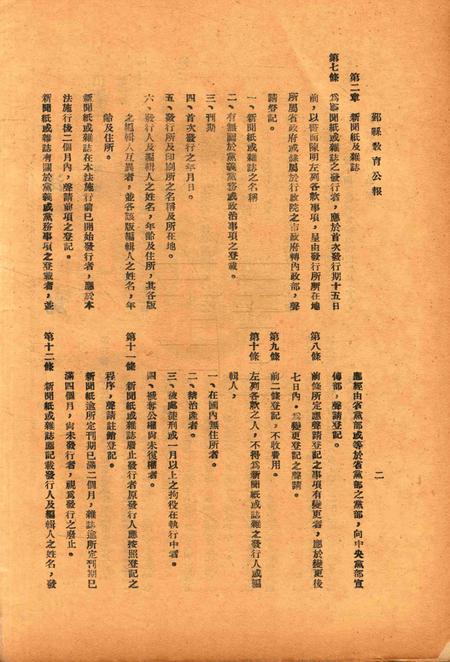 鄞縣教育公報
第二章　新聞紙及雜誌
第七條　為新聞紙或雜誌之發行者，應於首次發行期十五日
前，以書面陳明左列各款事項，呈由發行所所在地
所屬省政府或隸屬於行政院之市政府轉內政部，聲
請登記。
一、新聞紙或雜誌之名稱
二、有無關於黨義黨務或政治事項之登載。
三、刊期
四、首次發行之年月日。
五、發行所及印刷所之名稱及所在地。
六、發行人及編輯人之姓名，年齡及住所，其各版
之編輯人互異者，並各該版編輯人之姓名，年
齡及住所。
新聞紙或雜誌在本法施行前已開始發行者，應於本
法施行後二個月內，聲請前項之登記。
新聞紙或雜誌有關於黨義或黨務事項之登載者，並
二
應經由省黨部或等於省黨部之黨部，向中央黨部宣
傳部，聲請登記。
第八條　前條所定應聲請登記之事項有變更者，應於變更後
七日內，為變更登記之聲請。
第九條　前二條登記，不收費用。
第十條　左列各款之人，不得為新聞紙或誌雜之發行人或編
輯人，
一、在國內無住所者。
二、禁治產者。
三、被處徒刑或一月以上之拘役在執行中者。
四、褫奪公權尚未復權者。
第十一條　新聞紙或雜誌廢止發行者原發行人應按照登記之
程序，聲請註銷登記。
新聞紙逾所定刊期已滿二個月，雜誌逾所定刊期已
滿四個月，尚未發行者，視為發行之廢止。
第十二條　新聞紙或雜誌應記載發行人及編輯人之姓名，發